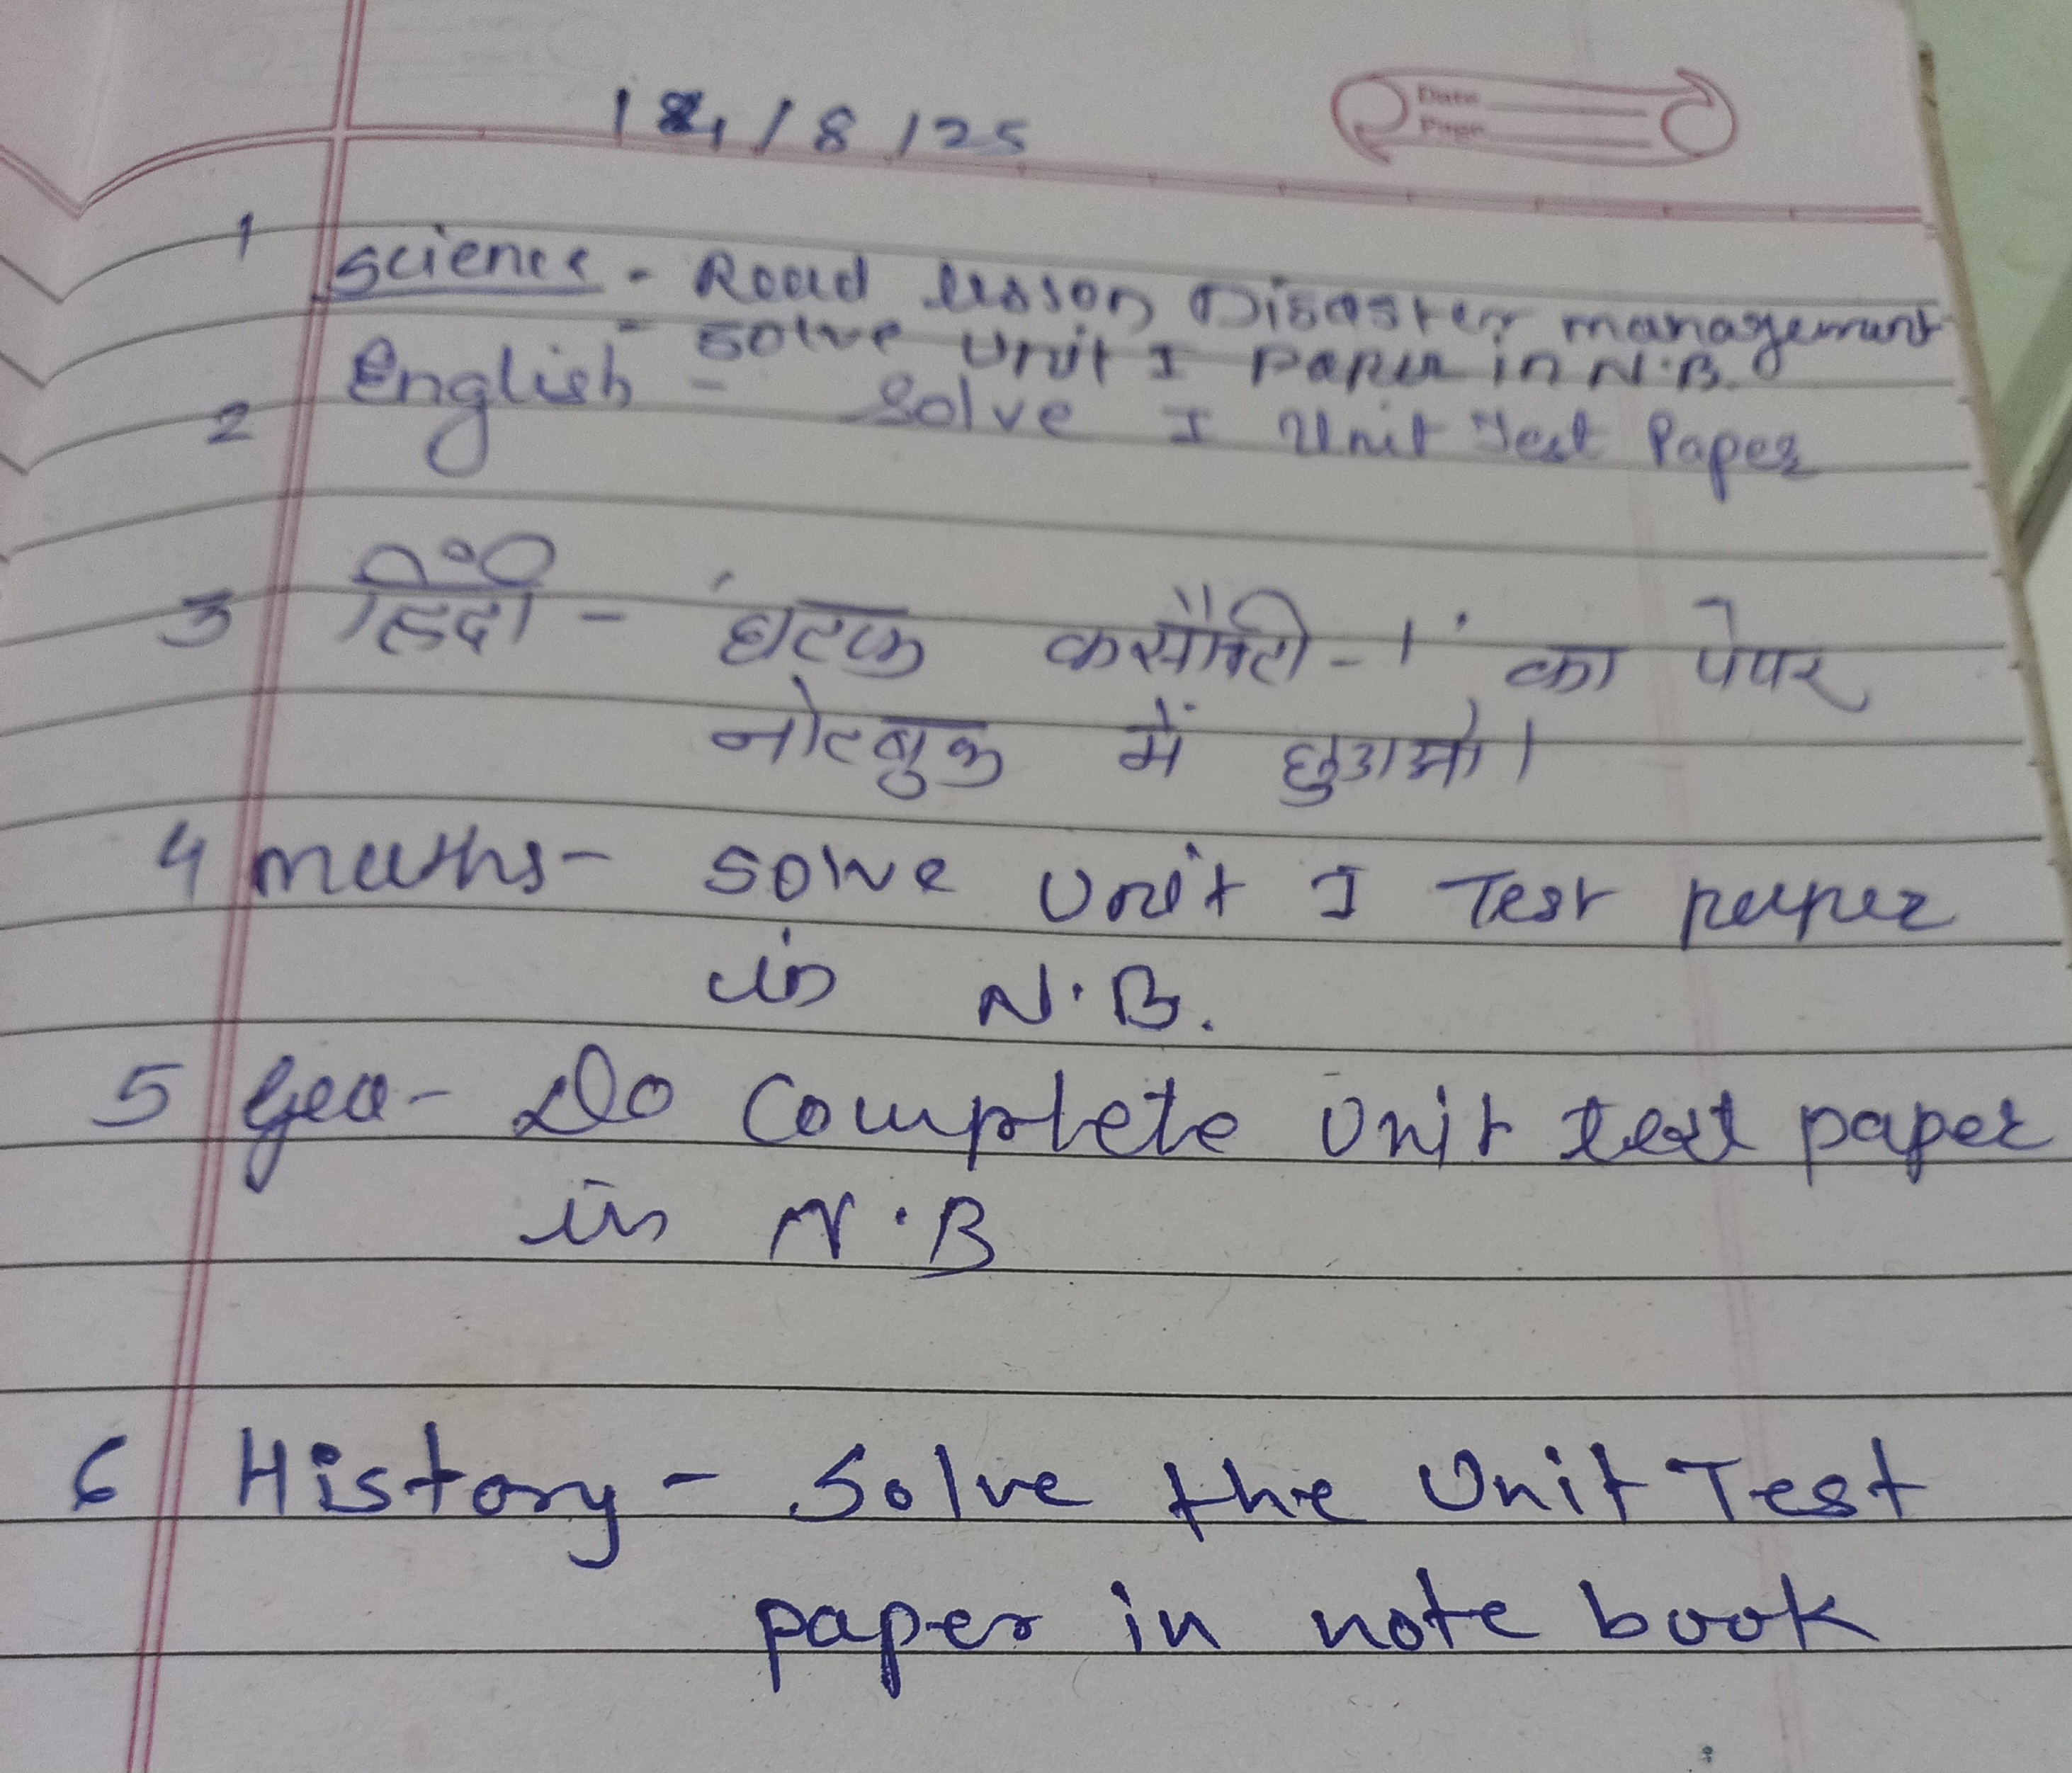 /8/25
Date
Page
1 Science - Read lesson Disaster management
- Solve Unit I Paper in N.B.
2 English - Solve I Unit Test Paper
3 हिंदी - 'घटक कसौटी-1' का पेपर
नोटबुक में
4 maths - solve Unit I Test paper
in N.B.
5 Geo - Do Complete Unit test paper
in N.B
6 History - Solve the Unit Test
paper in note book